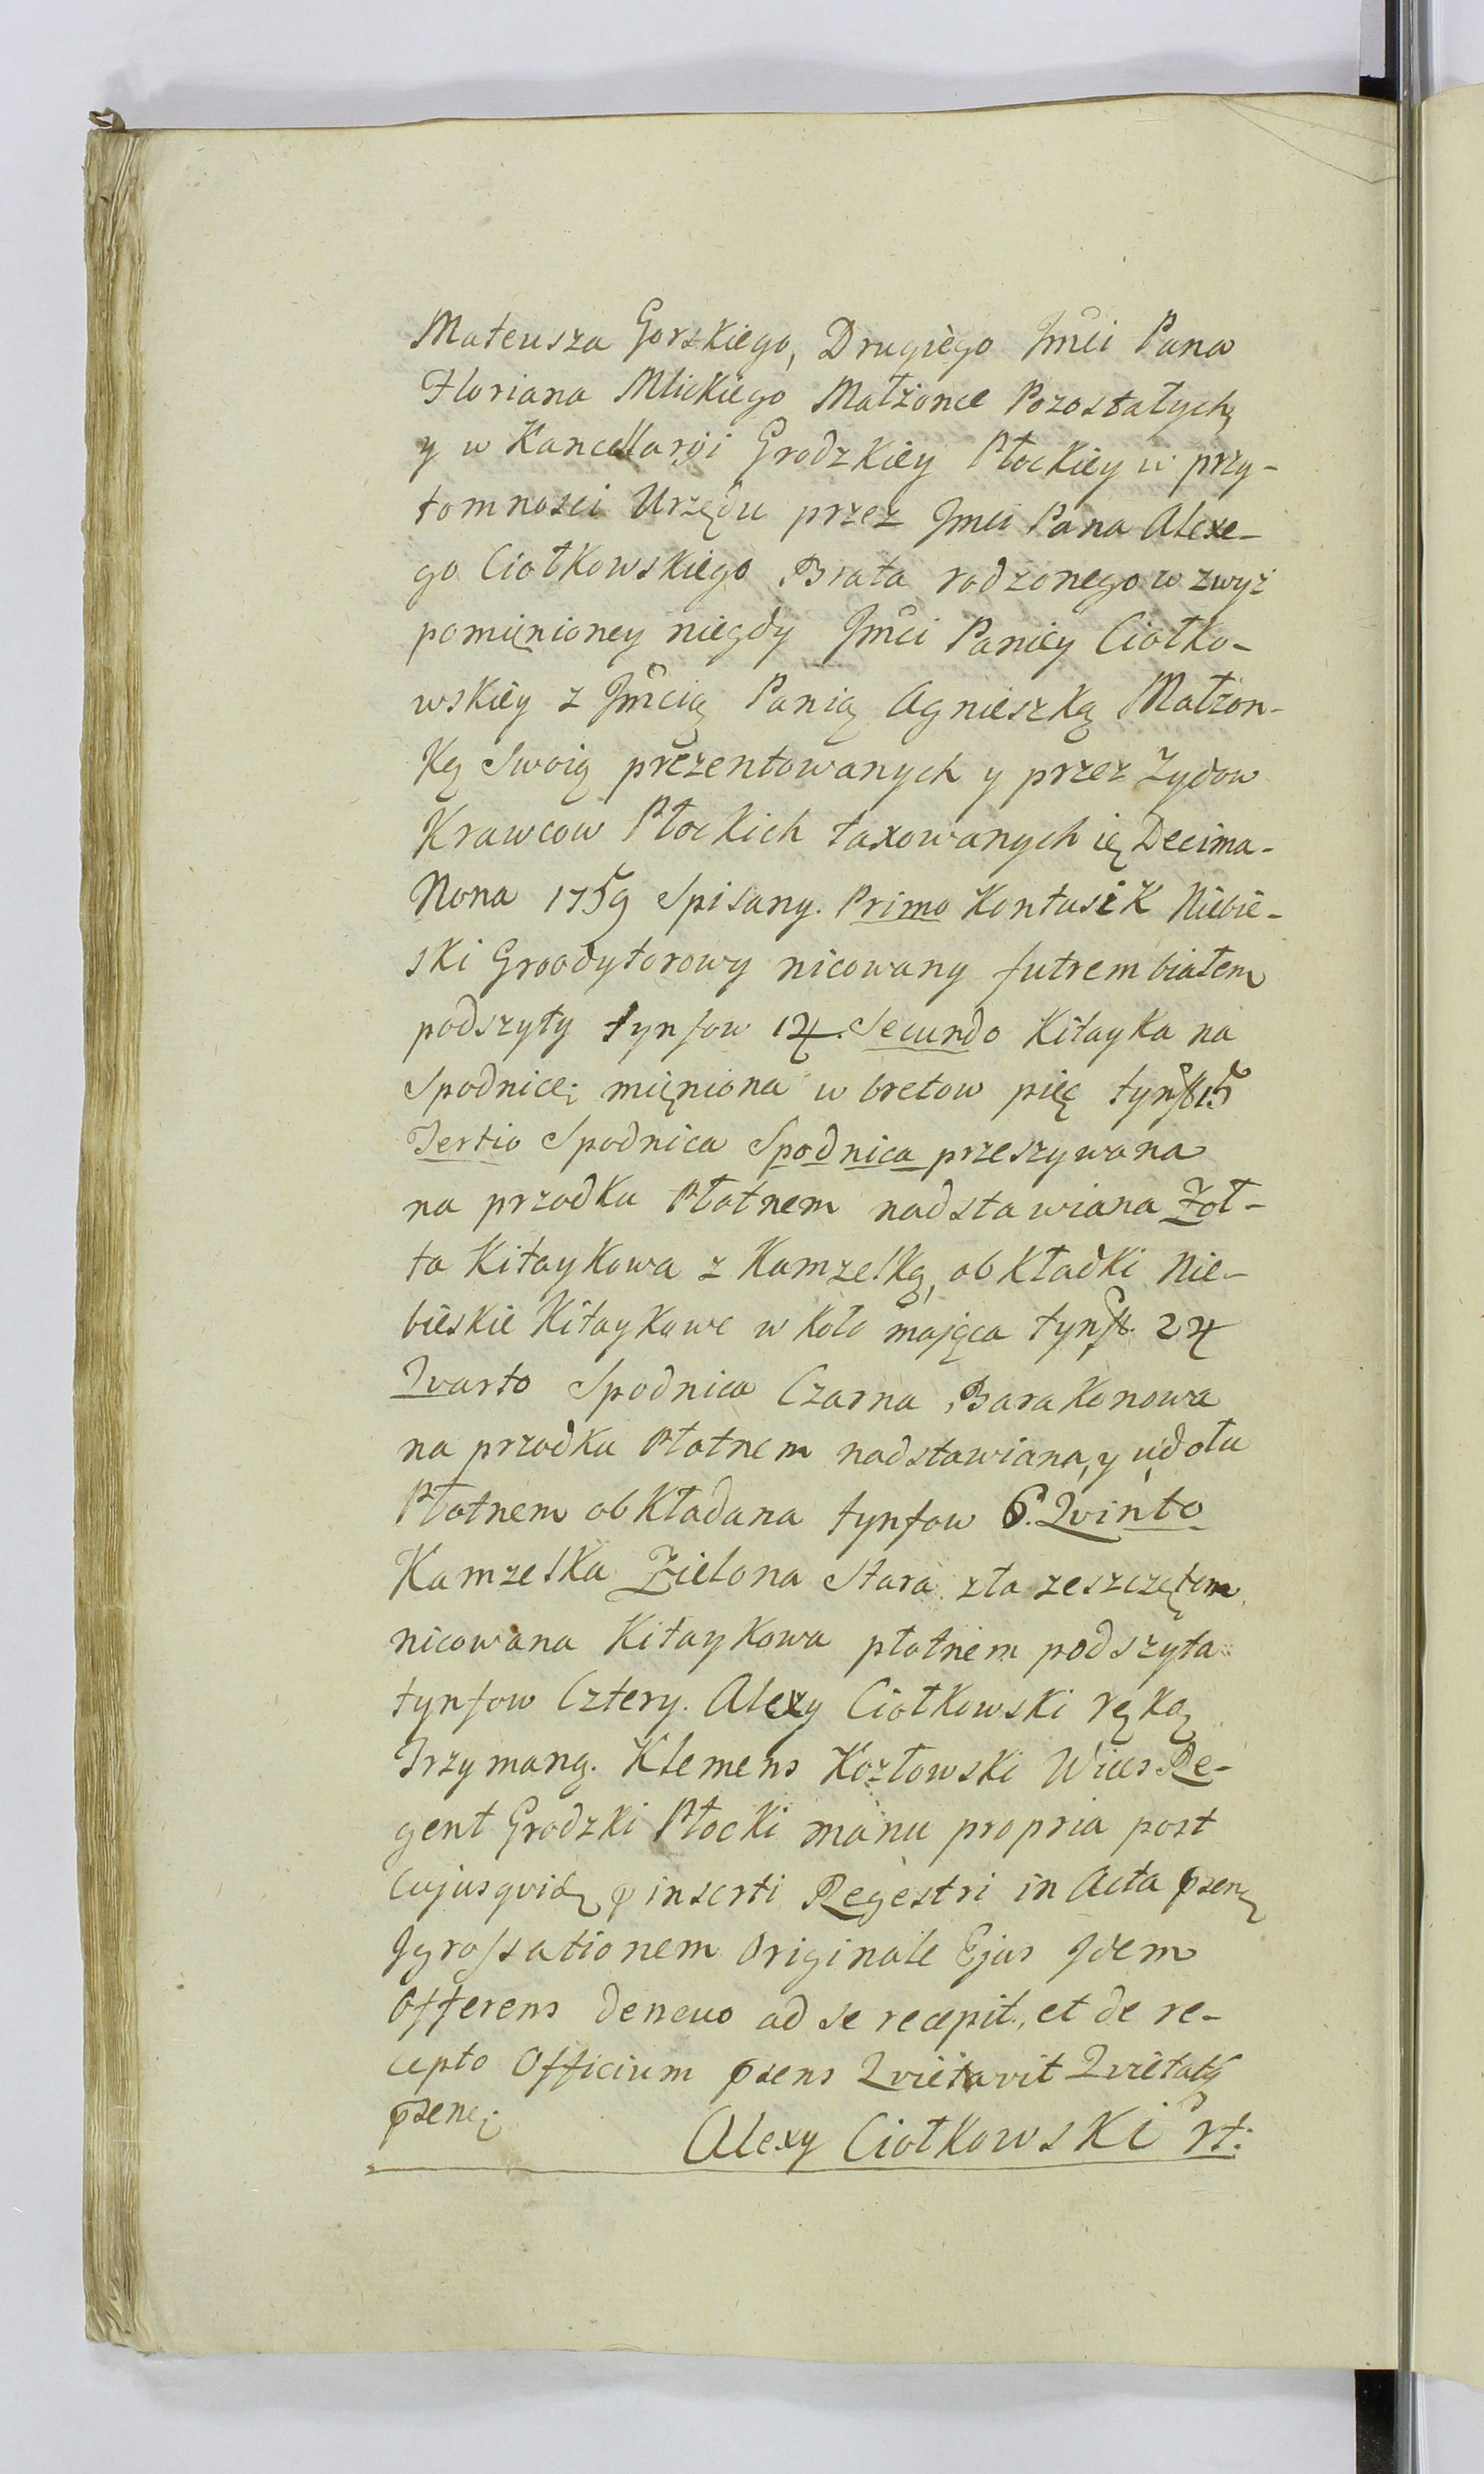 Mateusza Gorskiego, Drugiego Jmci Pana
Floriana Mlickiego Małżonce Pozostałych
y w Kancellaryi Grodzkiey Płockiey w przy-
tomnosci Urzędu przez Jmci Pana Alexe-
go Ciołkowskiego Brata rodzonego w zwyż
pomięnioney niegdy Jmci Paniey Ciołko-
wskiey z Jmcią Panią Agnieszką Małzon-
Ką Swoią prezentowanych y przez Zydow
Krawcow Płockich taxowanych ię Decima-
Nona 1759 Spisany. Primo Kontusik Niebie-
ski Grodytorowy nicowany futrem białem
podszyty tynfow 14. Secundo Kitayka na
Spodnicę mięniona w bretow pięć tynff 15
Tertio Spodnica Spodnica przeszywana
na przodku Płotnem nadstawiana Żoł-
ta Kitaykowa z Kamzelką, obkładki Nie-
bieskie Kitaykowe w koło mająca tynff. 24
Qvarto Spodnica Czarna Barakanowa
na przodku Płotnem nadstawiana, y udołu
Płotnem obkładana tynfow 6. Qvinto
Kamzelka Zielona Stara zła zeszczętem
nicowana Kitaykowa płotnem podszyta
tynfow Cztery. Alexy Ciołkowski ręką
Trzymaną. Klemens Kozłowski Wices Re-
gent Grodzki Płocki manu propria post
Cujusqvidę pinserti Regestri in Acta psenę
Jgrossationem Originale Ejus Jdem
Offerens denouo ad se recepit, et de re-
cepto Officium psens Qvietavit Qvietatq
psenę
Alexy Ciołkowski rt: